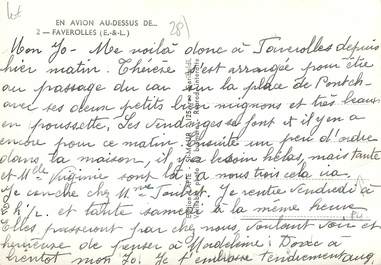 lot
EN AVION AU-DESSUS DE...
28
2 — FAVEROLLES (E.-&-L.)
Mon Jo - Me voilà donc à Faverolles depuis
hier matin. Thérèse s'est arrangée pour être
au passage du car sur la place de Pontch-
avec ses deux petits bien mignons et très beaux
en poussette. Les vendanges se font et il y en a
encore pour ce matin. Ensuite un peu d'ordre
dans la maison, il y a besoin hélas, mais tante
et Mlle Virginie sont là à nous trois cela ira.
Je couche chez Mme Je rentre vendredi à
et tante samedi à la même heure
Elles passeront par chez nous, voulant voir et
heureuse de penser à Madeleine! Donc à
bientôt mon Jo. Je t'embrasse tendrement